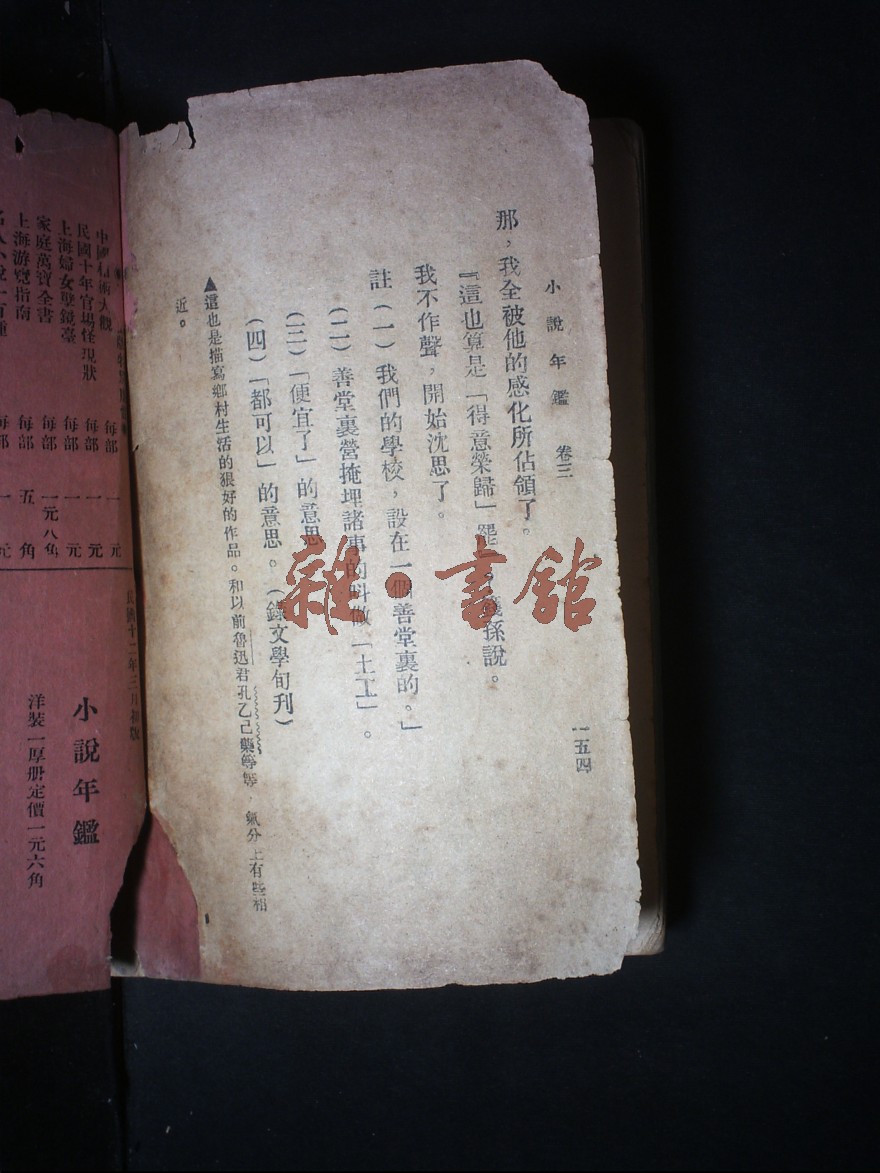 小說年鑑 卷三
一五四
那，我全被他的感化所佔領了。
『這也算是「得意榮歸」罷。』漢孫說。
我不作聲，開始沈思了。
註（一）我們的學校，設在一個善堂裏的。」
（二）善堂裏營掩埋諸事的叫做「土工」。
（三）「便宜了」的意思
（四）「都可以」的意思。（錄文學旬刋）
▲這也是描寫鄉村生活的狠好的作品。和以前魯迅君孔乙己藥等等，氣分上有些相
近。
雜·書館
民國十二年三月初版
小說年鑑
洋裝一厚册定價一元六角
中國 術大觀 每部 一元
民國十年官場怪現狀 每部 一元
上海婦女孽鏡臺 每部 一元
家庭萬寶全書 每部 一元八角
上海游覽指南 每部 五角
每部 一元